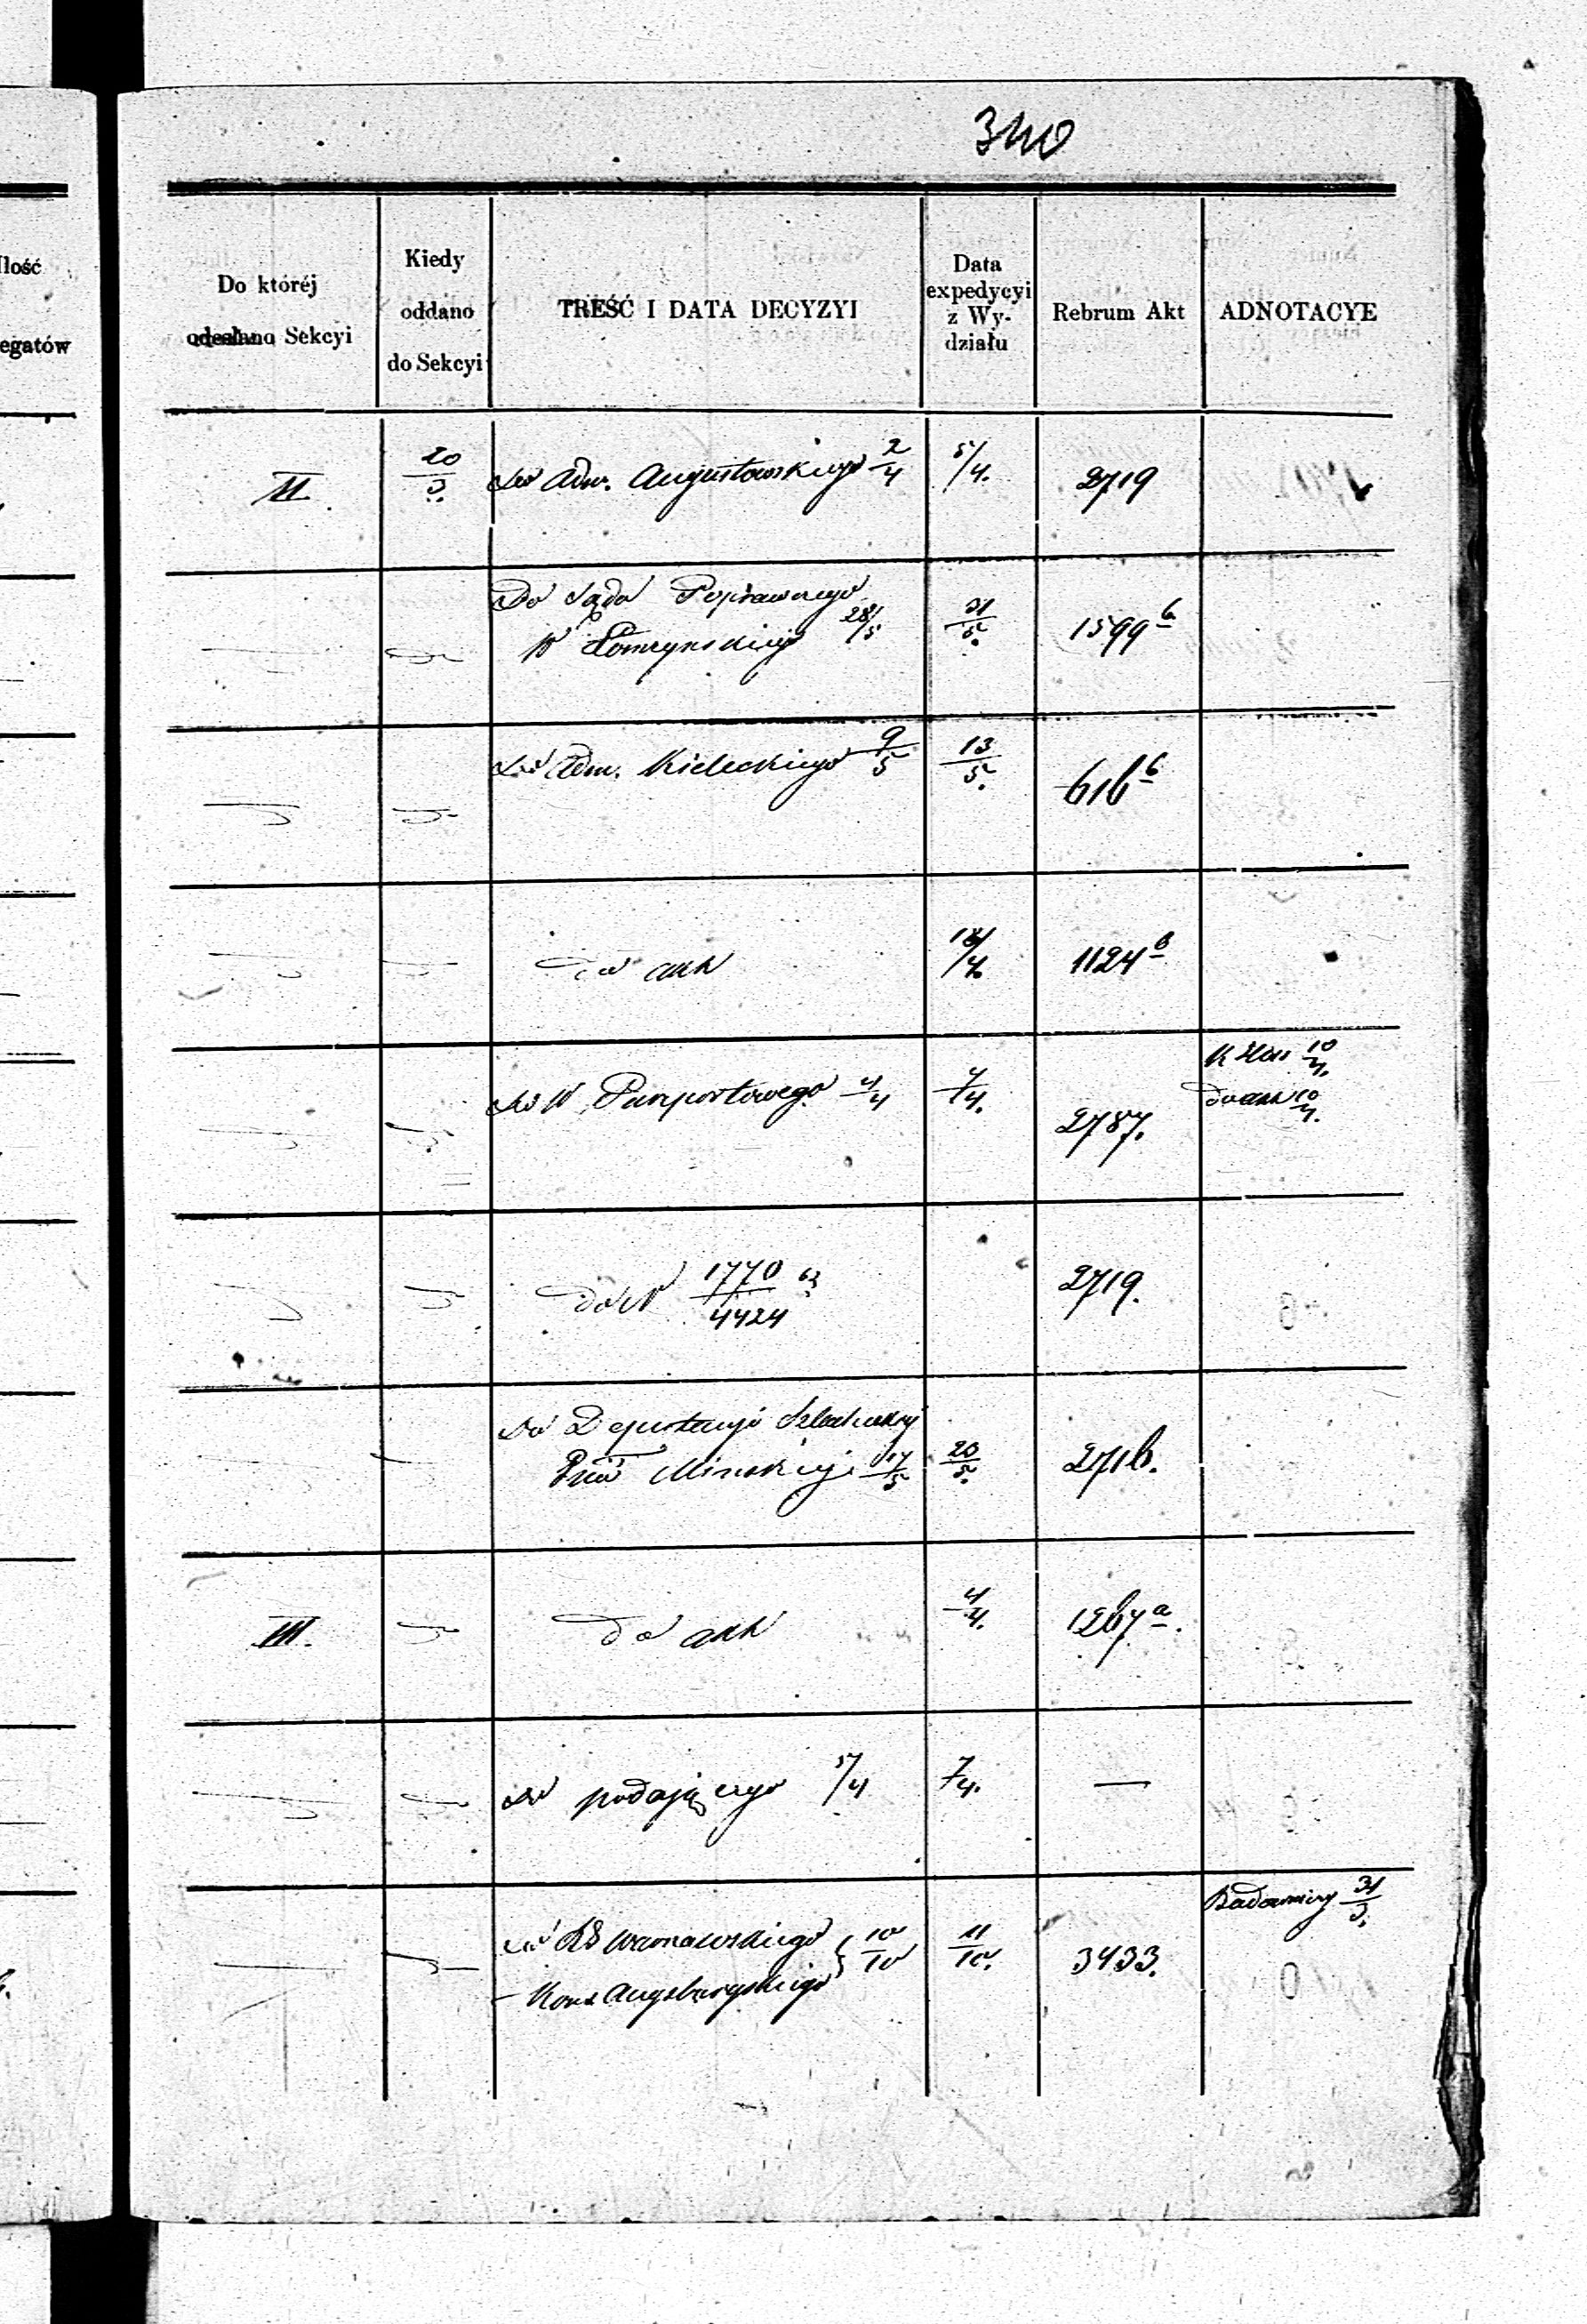 340
Ilość
egatów
Do któréj
odesłano Sekcyi
Kiedy
oddano
do Sekcyi
TREŚĆ I DATA DECYZYI
Data
expedycyi
z Wy-
działu
Rebrum Akt
ADNOTACYE
II.
20/3.
Do Adm. Augustowskiego 2/4
5/4.
2719
Do Sądu Poprawczego
W Łomżyńskiego 28/5
31/5.
1599 b
Do Adm. Kieleckiego 9/5
13/5.
616 b
do akt
18/4
1124 b
Do W Paszportowego 4/4
7/4.
2787.
10/4.
do akt 10/4.
do N 1770/4424 63
2719.
Do Deputacyi Szlacheckiej
Gub Minskiej 17/5
20/5.
2716.
III.
do akt
4/4.
1267 a.
Do podającego 5/4
7/4.
—
Do Warszawskiego
Kons Augsburgskiego
10/10
11/10.
3433.
31/3.